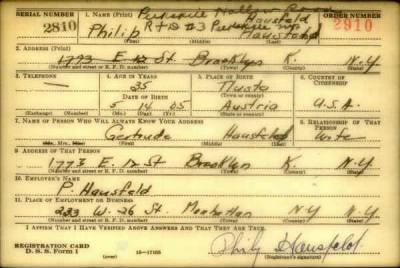 SERIAL NUMBER 1. NAME (Print) Hollow Road ORDER NUMBER
2810 Philip R F D #3 Hausfeld 2910
2. ADDRESS (Print)
1773 E. 12 St. Brooklyn K. N.Y
(Number and street or R. F. D. number) (Town) (County) (State)
3. TELEPHONE 4. AGE IN YEARS 5. PLACE OF BIRTH 6. COUNTRY OF CITIZENSHIP
— 35
DATE OF BIRTH
5 14 05 Austria U.S.A.
(Exchange) (Number) (Mo.) (Day) (Yr.) (State or country)
7. NAME OF PERSON WHO WILL ALWAYS KNOW YOUR ADDRESS 8. RELATIONSHIP OF THAT PERSON
Gertrude Hausfeld Wife
(Mr., Mrs., Miss) (First) (Middle) (Last)
9. ADDRESS OF THAT PERSON
1773 E. 12 St Brooklyn K. N.Y
(Number and street or R. F. D. number) (Town) (County) (State)
10. EMPLOYER'S NAME
P. Hausfeld
11. PLACE OF EMPLOYMENT OR BUSINESS
233 W. 26 St. Manhattan N.Y N.Y
(Number and street or R. F. D. number) (Town) (County) (State)
I AFFIRM THAT I HAVE VERIFIED ABOVE ANSWERS AND THAT THEY ARE TRUE.
REGISTRATION CARD
D. S. S. Form 1 16—17105 Philip Hausfeld
(Registrant's signature)